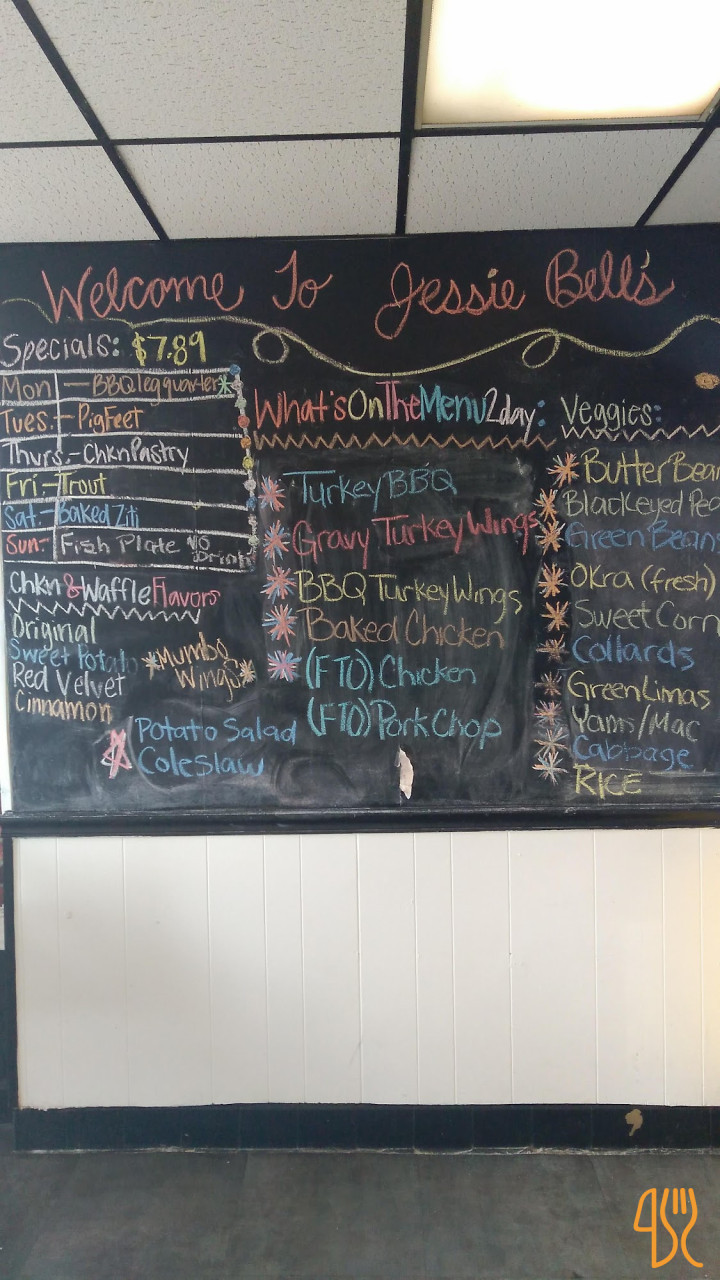 Welcome To Jessie Bell's
Specials: $7.89
Mon - BBQ leg quarter
Tues. - Pig Feet
Thurs. - Chkn Pastry
Fri. - Trout
Sat. - Baked Ziti
Sun - Fish Plate NO Drink
Chkn & Waffle Flavors
Original
Sweet Potato
Red Velvet
Cinnamon
Mumbo
Wings
Potato Salad
Coleslaw
What's On The Menu 2day:
Turkey BBQ
Gravy Turkey Wings
BBQ Turkey Wings
Baked Chicken
(FTO) Chicken
(FTO) Pork Chop
Veggies:
Butter Bean
Blackeyed Pea
Green Beans
Okra (fresh)
Sweet Corn
Collards
Green Limas
Yams/Mac
Cabbage
RICE